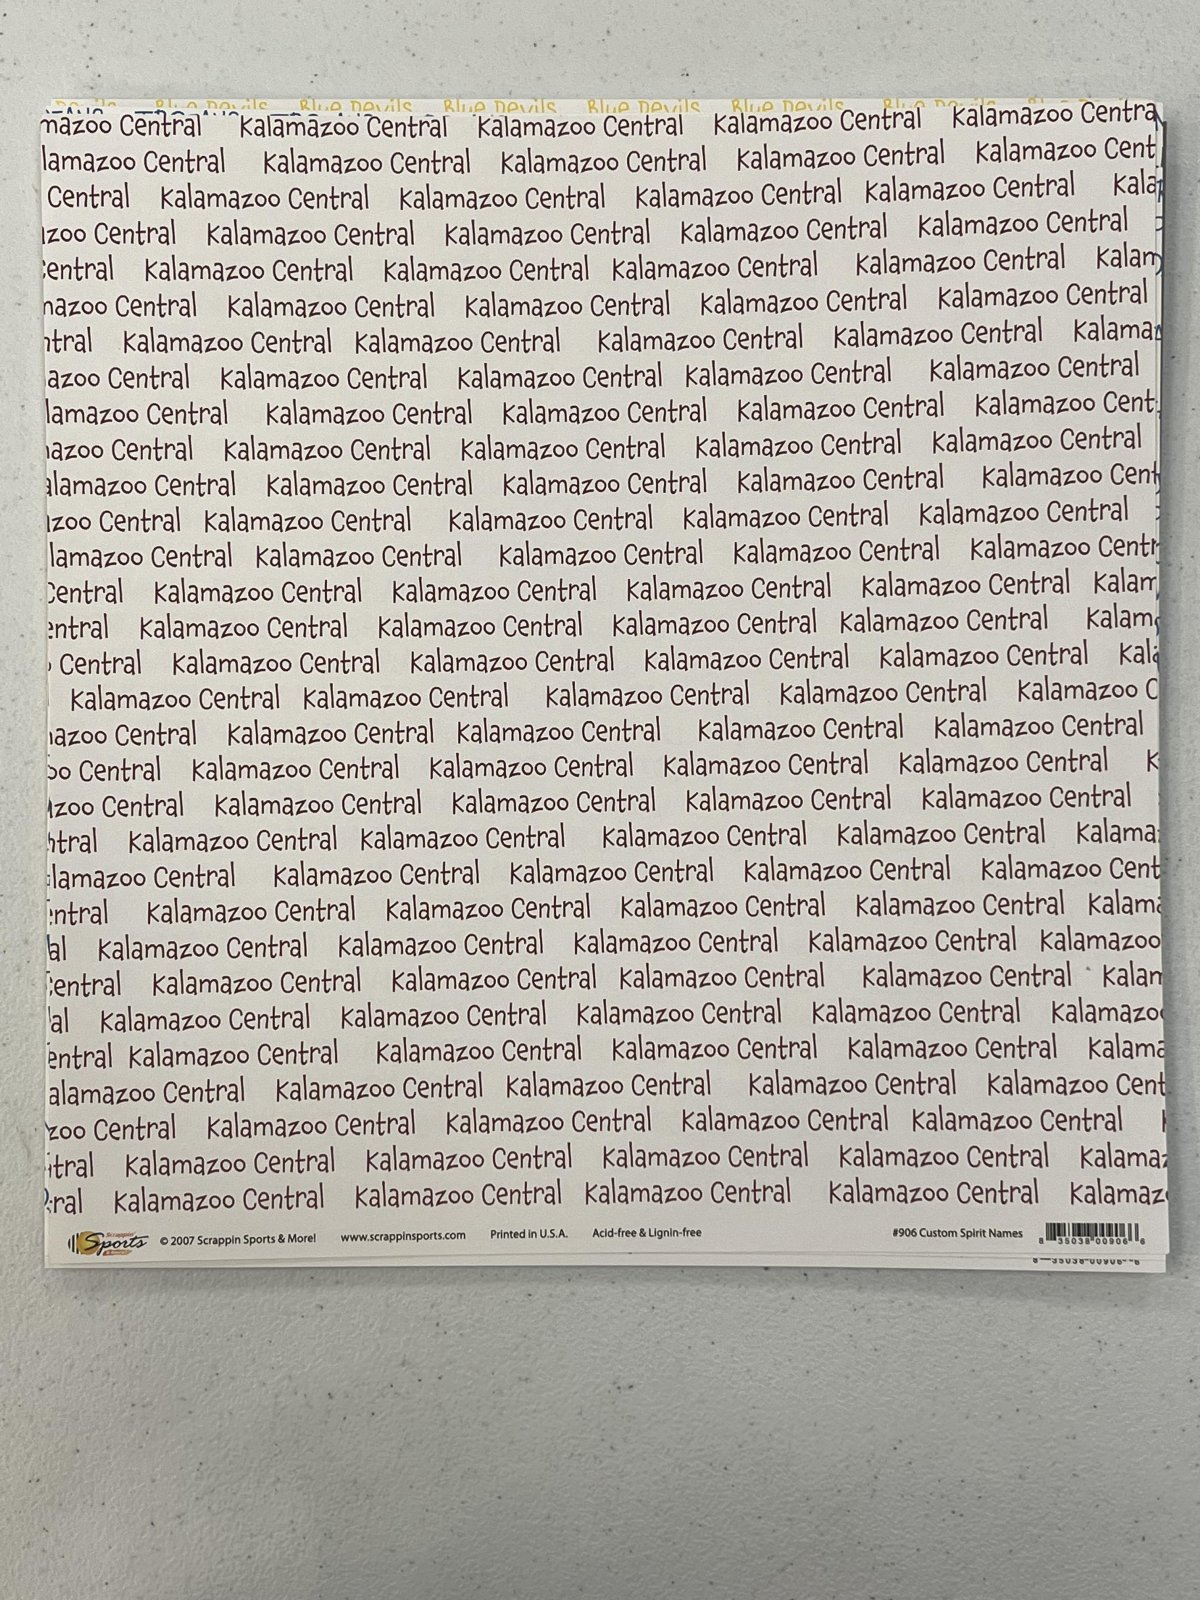 Devils Blue Devils Blue Devils Blue Devils Blue Devils Blue Devils Blue Devils Blue Devils
mazoo Central Kalamazoo Central Kalamazoo Central Kalamazoo Central Kalamazoo Centra
lamazoo Central Kalamazoo Central Kalamazoo Central Kalamazoo Central Kalamazoo Cent
Central Kalamazoo Central Kalamazoo Central Kalamazoo Central Kalamazoo Central Kala
zoo Central Kalamazoo Central Kalamazoo Central Kalamazoo Central Kalamazoo Central
entral Kalamazoo Central Kalamazoo Central Kalamazoo Central Kalamazoo Central Kalam
mazoo Central Kalamazoo Central Kalamazoo Central Kalamazoo Central Kalamazoo Central
ntral Kalamazoo Central Kalamazoo Central Kalamazoo Central Kalamazoo Central Kalama
azoo Central Kalamazoo Central Kalamazoo Central Kalamazoo Central Kalamazoo Central
lamazoo Central Kalamazoo Central Kalamazoo Central Kalamazoo Central Kalamazoo Cent
azoo Central Kalamazoo Central Kalamazoo Central Kalamazoo Central Kalamazoo Central
alamazoo Central Kalamazoo Central Kalamazoo Central Kalamazoo Central Kalamazoo Cent
zoo Central Kalamazoo Central Kalamazoo Central Kalamazoo Central Kalamazoo Central
lamazoo Central Kalamazoo Central Kalamazoo Central Kalamazoo Central Kalamazoo Centr
Central Kalamazoo Central Kalamazoo Central Kalamazoo Central Kalamazoo Central Kalam
entral Kalamazoo Central Kalamazoo Central Kalamazoo Central Kalamazoo Central Kalam
Central Kalamazoo Central Kalamazoo Central Kalamazoo Central Kalamazoo Central Kala
Kalamazoo Central Kalamazoo Central Kalamazoo Central Kalamazoo Central Kalamazoo C
azoo Central Kalamazoo Central Kalamazoo Central Kalamazoo Central Kalamazoo Central
oo Central Kalamazoo Central Kalamazoo Central Kalamazoo Central Kalamazoo Central K
zoo Central Kalamazoo Central Kalamazoo Central Kalamazoo Central Kalamazoo Central
ntral Kalamazoo Central Kalamazoo Central Kalamazoo Central Kalamazoo Central Kalama
lamazoo Central Kalamazoo Central Kalamazoo Central Kalamazoo Central Kalamazoo Cent
entral Kalamazoo Central Kalamazoo Central Kalamazoo Central Kalamazoo Central Kalama
al Kalamazoo Central Kalamazoo Central Kalamazoo Central Kalamazoo Central Kalamazoo
Central Kalamazoo Central Kalamazoo Central Kalamazoo Central Kalamazoo Central Kalam
al Kalamazoo Central Kalamazoo Central Kalamazoo Central Kalamazoo Central Kalamazoo
entral Kalamazoo Central Kalamazoo Central Kalamazoo Central Kalamazoo Central Kalama
alamazoo Central Kalamazoo Central Kalamazoo Central Kalamazoo Central Kalamazoo Cent
zoo Central Kalamazoo Central Kalamazoo Central Kalamazoo Central Kalamazoo Central
tral Kalamazoo Central Kalamazoo Central Kalamazoo Central Kalamazoo Central Kalamaz
ral Kalamazoo Central Kalamazoo Central Kalamazoo Central Kalamazoo Central Kalamaz
Scrappin Sports © 2007 Scrappin Sports & More! www.scrappinsports.com Printed in U.S.A. Acid-free & Lignin-free #906 Custom Spirit Names 8 35038 00906 6
8 35038 00906 6